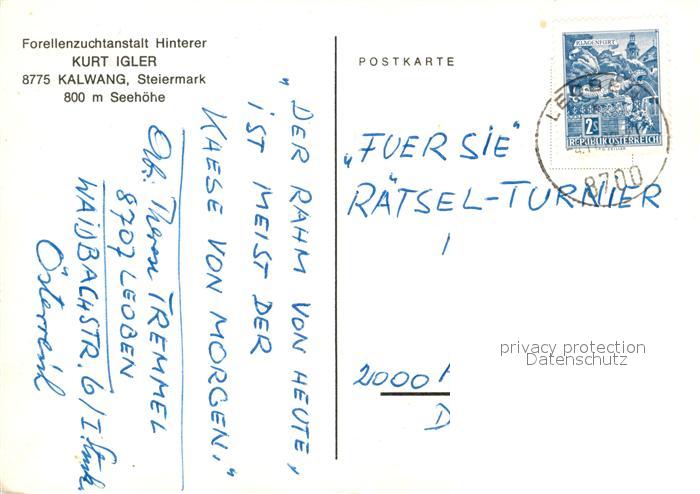 Forellenzuchtanstalt Hinterer
KURT IGLER
8775 KALWANG, Steiermark
800 m Seehöhe
POSTKARTE
KLAGENFURT
2S
REPUBLIK ÖSTERREICH
LEOBEN
8700
„DER RAHM VON HEUTE,
IST MEIST DER
KAESE VON MORGEN."
TREMMEL
8707 LEOBEN
WAIDBACHSTR. 6/I.
Österreich
„FUER SIE"
RÄTSEL-TURNIER
2000
D
privacy protection
Datenschutz